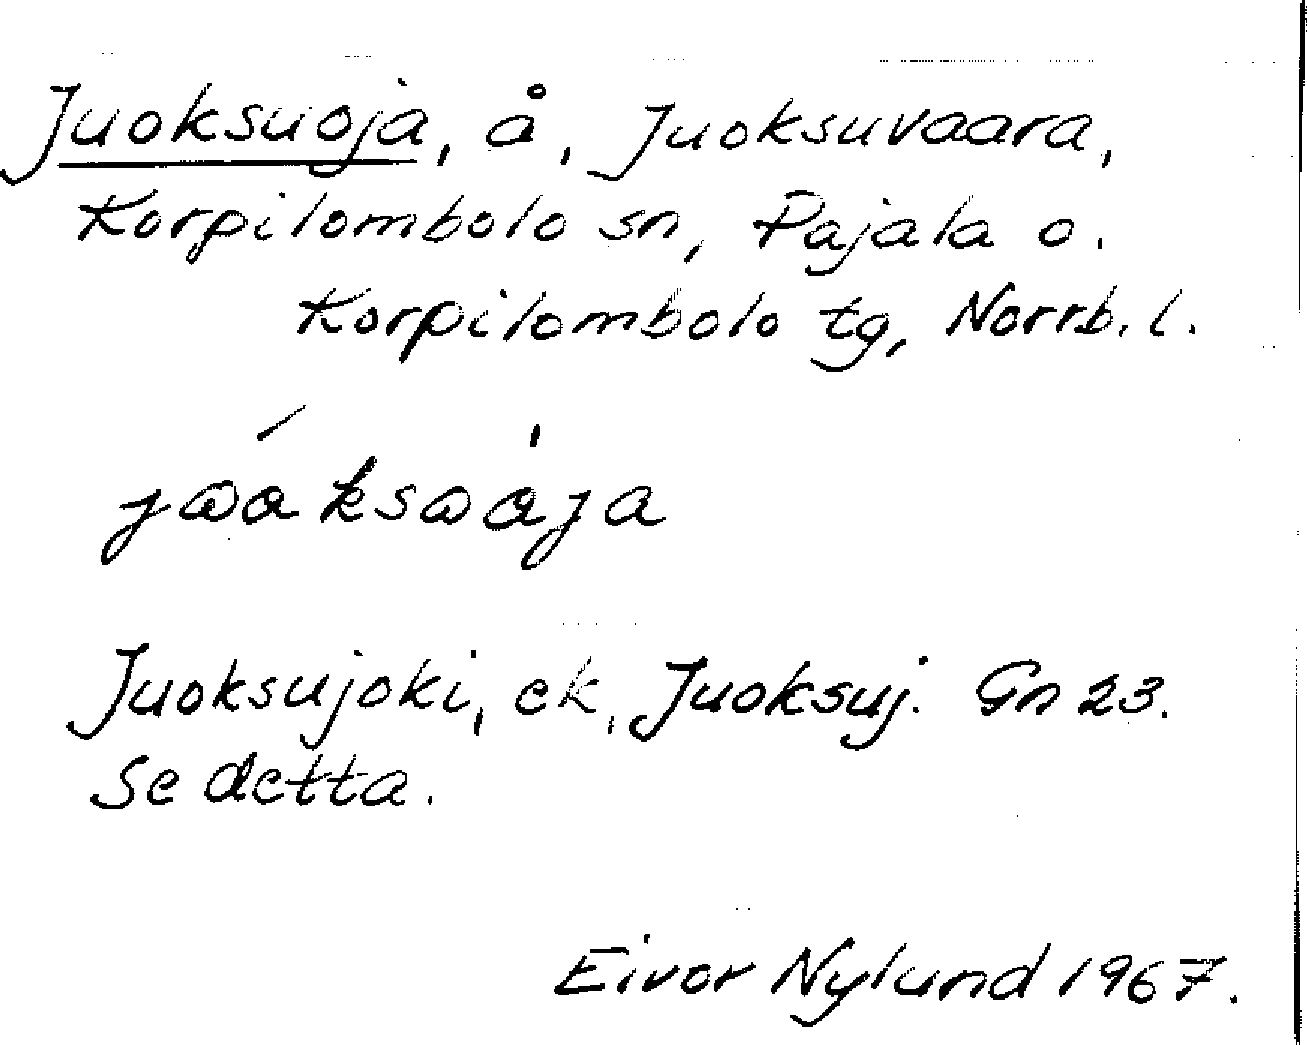 Juoksuoja, å, Juoksuvaara,
Korpilombolo sn, Pajala o.
Korpilombolo tg, Norrb. l.
Juoksujoki, ek, Juoksuj. Gn 23.
Se detta.
Eivor Nylund 1967.